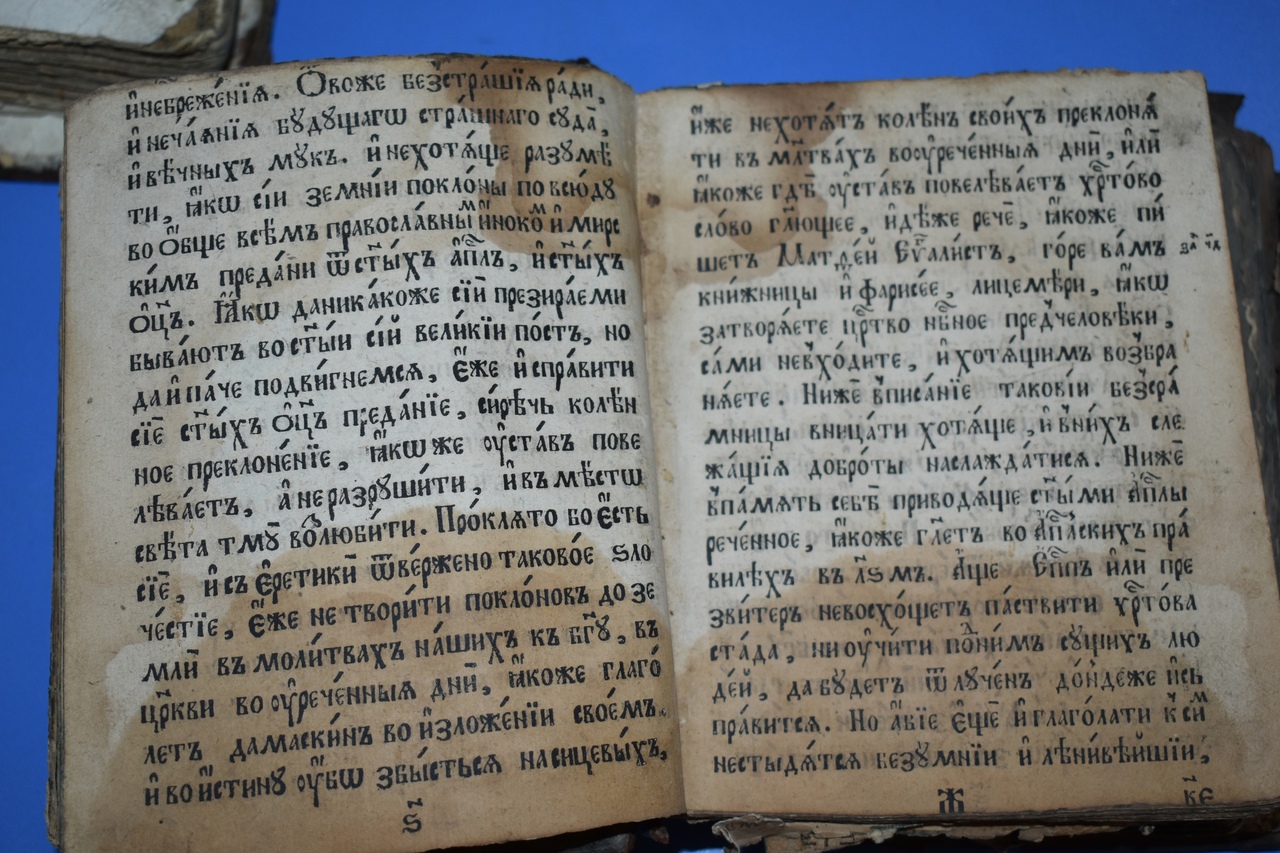 и҆небреже́нїѧ. Ѻ҆́воже безⸯстра́шїѧ ра́ди,
и҆ неча́ѧнїѧ бꙋ́дꙋщагѡ стра́шнаго сꙋда̀,
и҆ вѣ́чныхъ мꙋ́къ. и҆ нехотѧ́ще разꙋмѣ
ти, ꙗ҆́кѡ сїи земні́и покло́ны повсю́дꙋ
во ѻ҆́бще всѣ́мъ правосла́вныⷨ и҆́нокоⷨ и҆ мирс
ки́мъ преда́ни ѿ ст҃ы́хъ а҆п҃лъ, и҆ ст҃ы́хъ
ѻ҆ц҃ъ. Ꙗ҆́кѡ даника́коже сїѝ презира́еми
быва́ютъ во ст҃ы́и сі́й вели́кїи по́стъ, но
да и҆ па́че подви́гнемсѧ, є҆́же и҆спра́вити
сїѐ ст҃ы́хъ ѻ҆ц҃ъ преда́нїе, си́рѣчь колѣ́н
ное преклоне́нїе, ꙗ҆́кѡже ᲂу҆ста́въ пове
лѣва́етъ, а҆ не разрꙋши́ти, и҆ въ мѣ́стѡ
свѣ́та тмꙋ̀ воⷥлюби́ти. Про́клѧто бо є҆́сть
сїѐ, и҆ съ є҆ретикѝ ѿве́ржено таково́е ѕло
че́стїе, є҆́же не твори́ти покло́новъ до зе
млѝ въ моли́твахъ на́шихъ къ бг҃ꙋ, въ
цр҃кви во ᲂу҆рече́нныѧ днѝ, ꙗ҆́коже глаго́
летъ дамаски́нъ во и҆зложе́нїи своє́мъ.
и҆ во и҆́стинꙋ ᲂу҆́бѡ збы́стьсѧ на сицевы́хъ,
ѕ҃
и҆́же нехотѧ́тъ колѣ́нъ свои́хъ преклонѧ́
ти въ мл҃тва́хъ во ᲂу҆рече́нныѧ днѝ, и҆лѝ
ꙗ҆́коже гдѣ̀ ᲂу҆ста́въ повелѣва́етъ хр҃то́во
сло́во гл҃ющее, и҆дѣ́же речѐ, ꙗ҆́коже пи́
шетъ Матѳе́й Еѵ҃али́стъ, го́ре ва́мъ
за҃ ча҃
кни́жницы и҆ фарисе́е, лицемѣ́ри, ꙗ҆́кѡ
затворѧ́ете црⷭ҇тво нб҃ное предⸯчеловѣ́ки,
са́ми невⸯхо́дите, и҆ хотѧ́щимъ возⸯбра
нѧ́ете. Нижѐ вⸯписа́нїе такові́и безⸯсра́
мницы вница́ти хотѧ́ще, и҆ вⸯни́хъ сле
жа́щїѧ добро́ты наслажда́тисѧ. Нижѐ
вⸯпа́мѧть себѣ̀ приводѧ́ще ст҃ы́ми а҆п҃лы
рече́нное, ꙗ҆́коже гл҃етъ во а҆п҃лскихъ пра́
вилѣхъ въ л҃ѕмъ. А҆́ще Е҆п҃пъ и҆лѝ пре
зви́теръ невосхо́щетъ па́ствити хр҃то́ва
ста́да, ни ᲂу҆чи́ти поⷣни́мъ сꙋ́щихъ лю
де́й, да бꙋ́детъ ѿлꙋче́нъ до́ндеже и҆сь
пра́витсѧ. Но а҆́бїе є҆щѐ и҆ глаго́лати к си́ⷨ
нестыдѧ́тсѧ безꙋмнїи и҆ лѣни́вѣйшїи,
к҃є